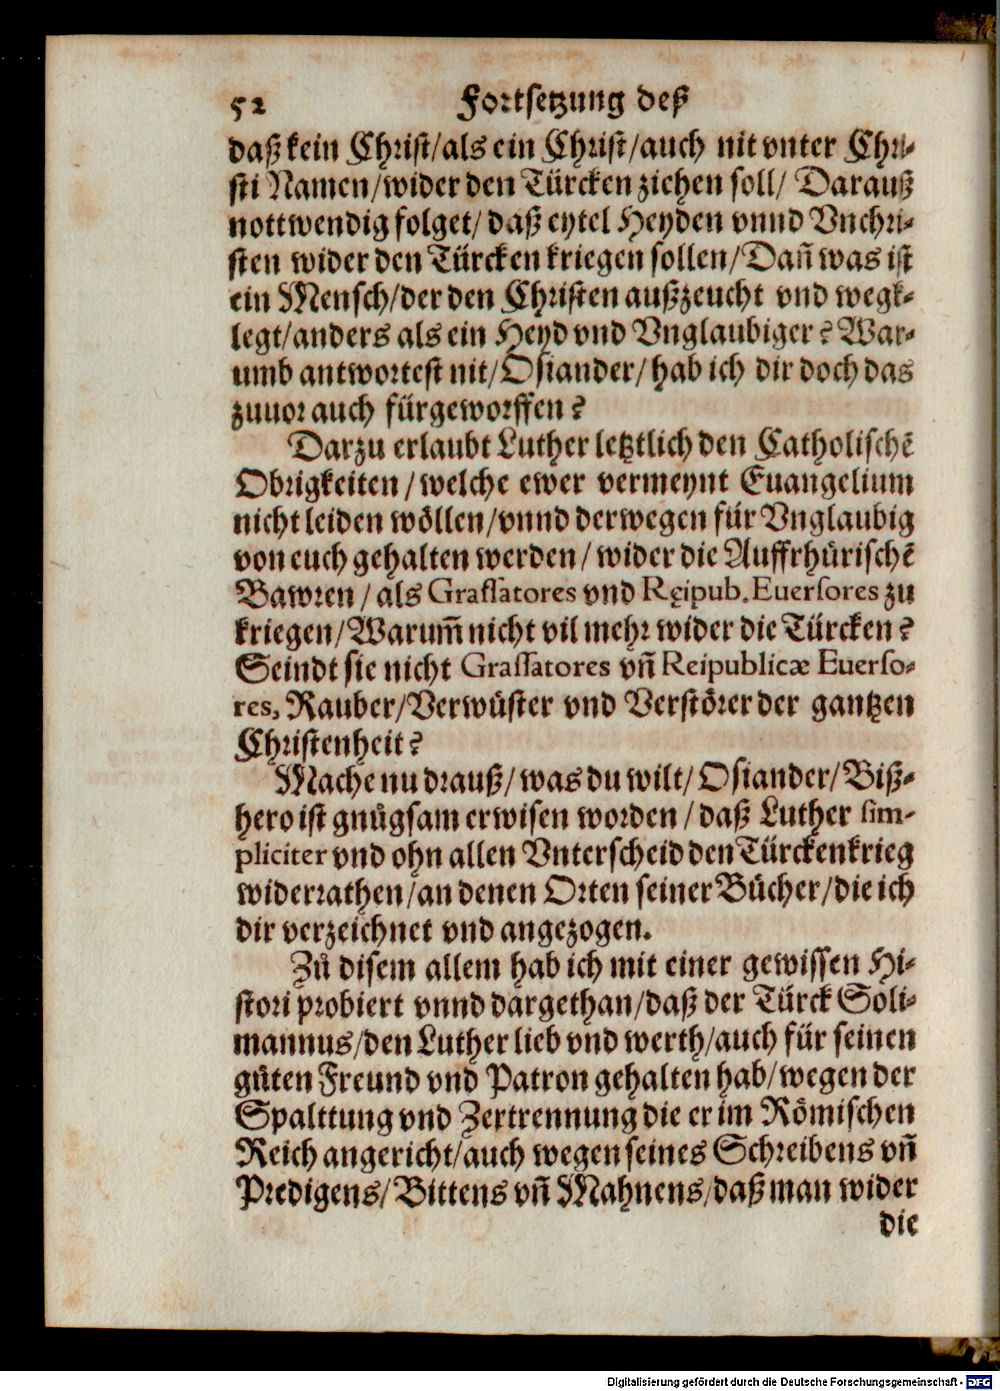 52 Fortsetzung deß
daß kein Christ/als ein Christ/auch nit vnter Chri-
sti Namen/wider den Türcken ziehen soll/ Darauß
nottwendig folget/ daß eytel Heyden vnnd Vnchri-
sten wider den Türcken kriegen sollen/Dañ was ist
ein Mensch/der den Christen außzeucht vnd wegk-
legt/anders als ein Heyd vnd Vnglaubiger? War-
umb antwortest nit/Osiander/hab ich dir doch das
zuuor auch fürgeworffen?
Darzu erlaubt Luther letztlich den Catholischẽ
Obrigkeiten/welche ewer vermeynt Euangelium
nicht leiden wöllen/vnnd derwegen für Vnglaubig
von euch gehalten werden/ wider die Auffrhürischẽ
Bawren/als Grassatores vnd Reipub. Euersores zu
kriegen/Warum̃ nicht vil mehr wider die Türcken?
Seindt sie nicht Grassatores vñ Reipublicæ Euerso-
res, Rauber/Verwüster vnd Verstörer der gantzen
Christenheit?
Mache nu drauß/was du wilt/Osiander/Biß-
hero ist gnůgsam erwisen worden/daß Luther sim-
pliciter vnd ohn allen Vnterscheid den Türckenkrieg
widerrathen/an denen Orten seiner Bücher/die ich
dir verzeichnet vnd angezogen.
Zů disem allem hab ich mit einer gewissen Hi-
stori probiert vnnd dargethan/daß der Türck Soli-
mannus/den Luther lieb vnd werth/auch für seinen
gůten Freund vnd Patron gehalten hab/wegen der
Spalttung vnd Zertrennung die er im Römischen
Reich angericht/auch wegen seines Schreibens vñ
Predigens/Bittens vñ Mahnens/daß man wider
die
Digitalisierung gefördert durch die Deutsche Forschungsgemeinschaft - DFG